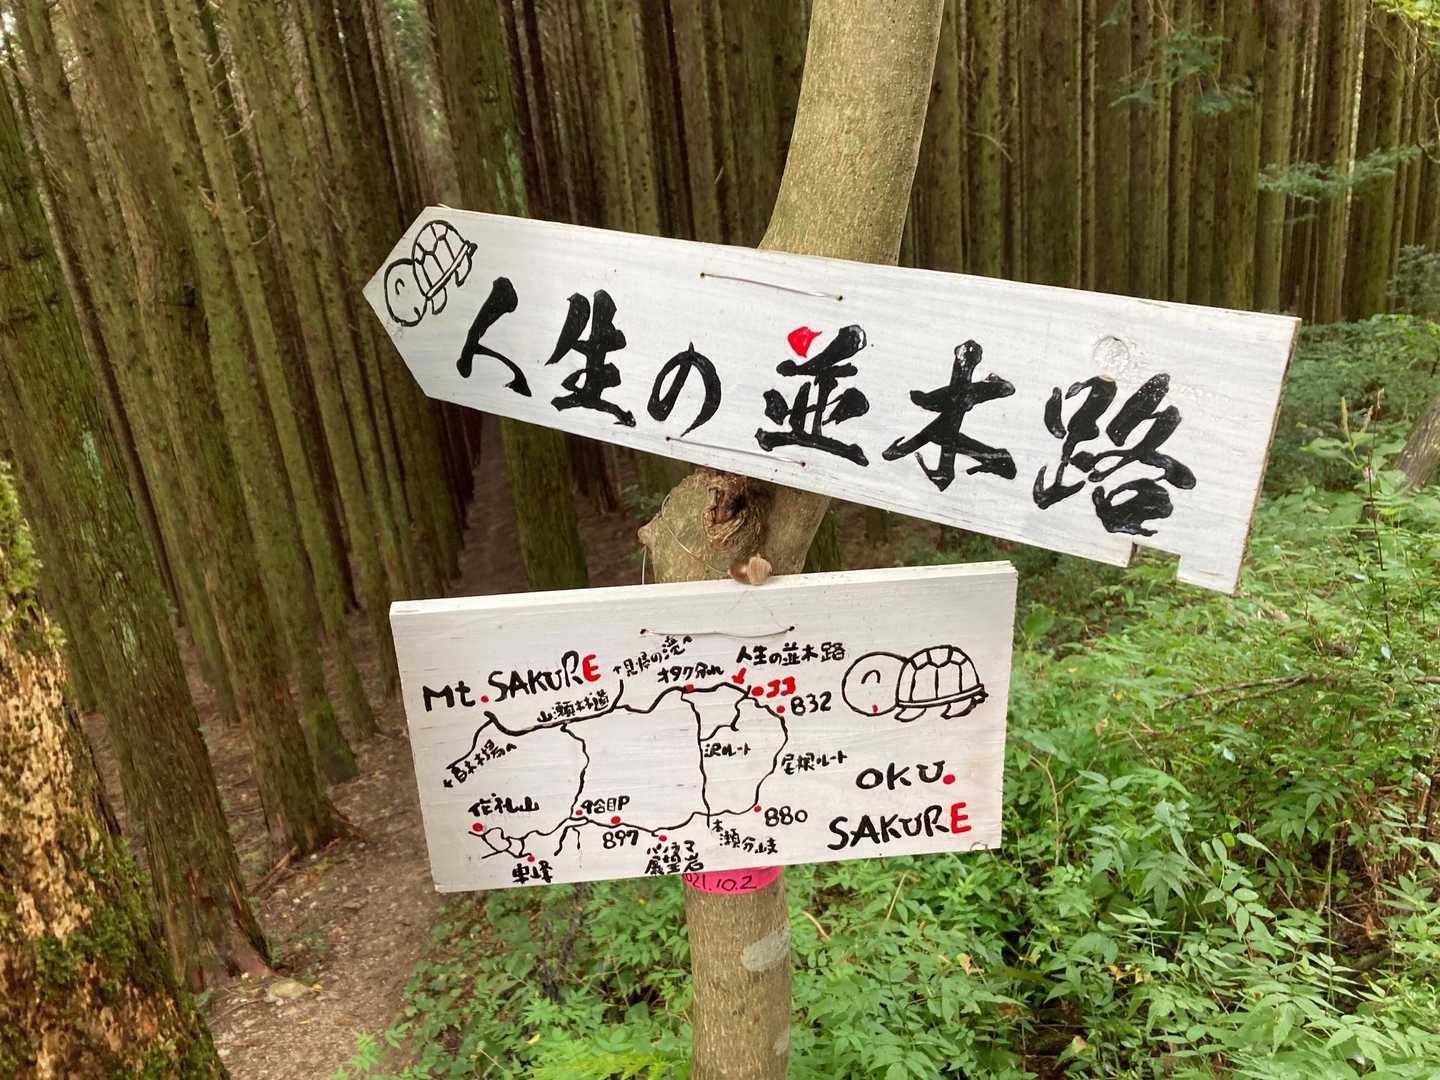 人生の並木路
Mt.SAKURE
見帰の滝へ
オタク分れ
人生の並木路
ココ
832
山瀬林道
沢ルート
尾根ルート
OKU.
SAKURE
作礼山
9合目P
897
880
東峰
パノラマ
展望岩
瀬分岐
21.10.2